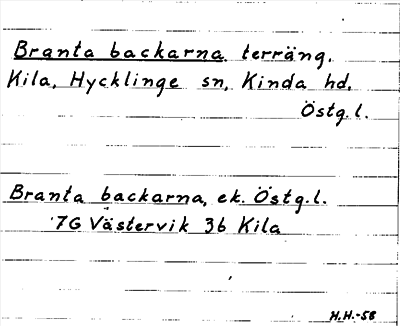 Branta backarna terräng.
Kila, Hycklinge sn, Kinda hd.
Östg.l.
Branta backarna, ek. Östg.l.
7G Västervik 3b Kila
H.H.-58